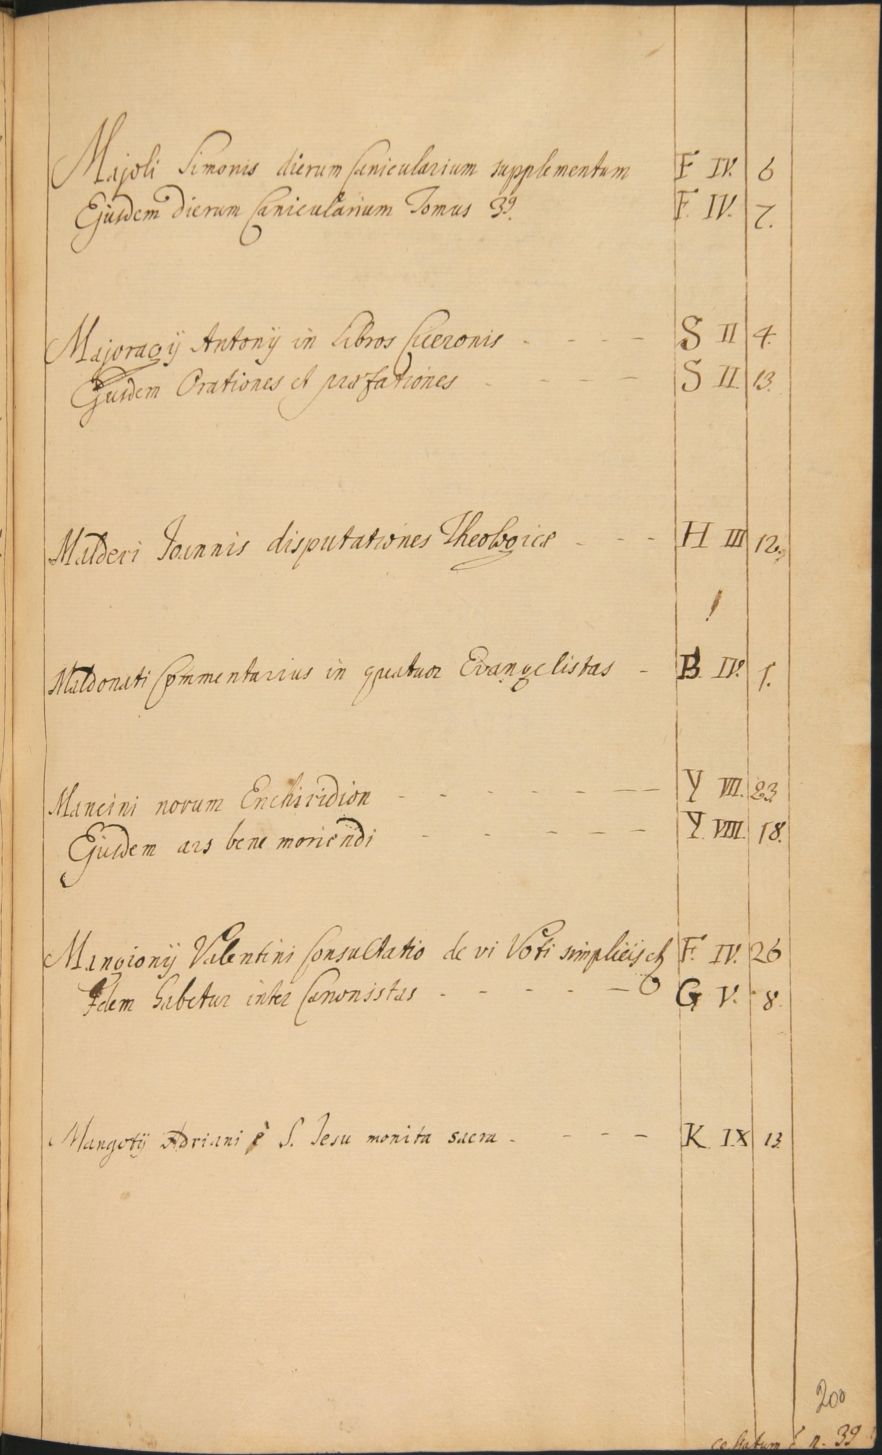 Majoli Simonis dierum Canicularium supplementum F IV. 6
Ejusdem dierum Canicularium Tomus 39. F. IV. 7.
Majoragij Antonij in Libros Ciceronis - - - - S II 4.
Ejusdem Orationes et præfationes - - - - S II. 13.
Malderi Joannis disputationes Theologicæ - - - H III 12.
Maldonati Commentarius in quatuor Evangelistas - B IV. 1.
Mancini novum Enchiridion - - - - - - - Y VII. 23
Ejusdem ars bene moriendi - - - - - Y. VIII. 18.
Mangionij Valentini Consultatio de vi Voti simplicis et F. IV. 26
Idem habetur inter Canonistas - - - - - G V. 8.
Mangotij Adriani è S. Jesu monita sacra - - - - K IX 13
200
n. 39